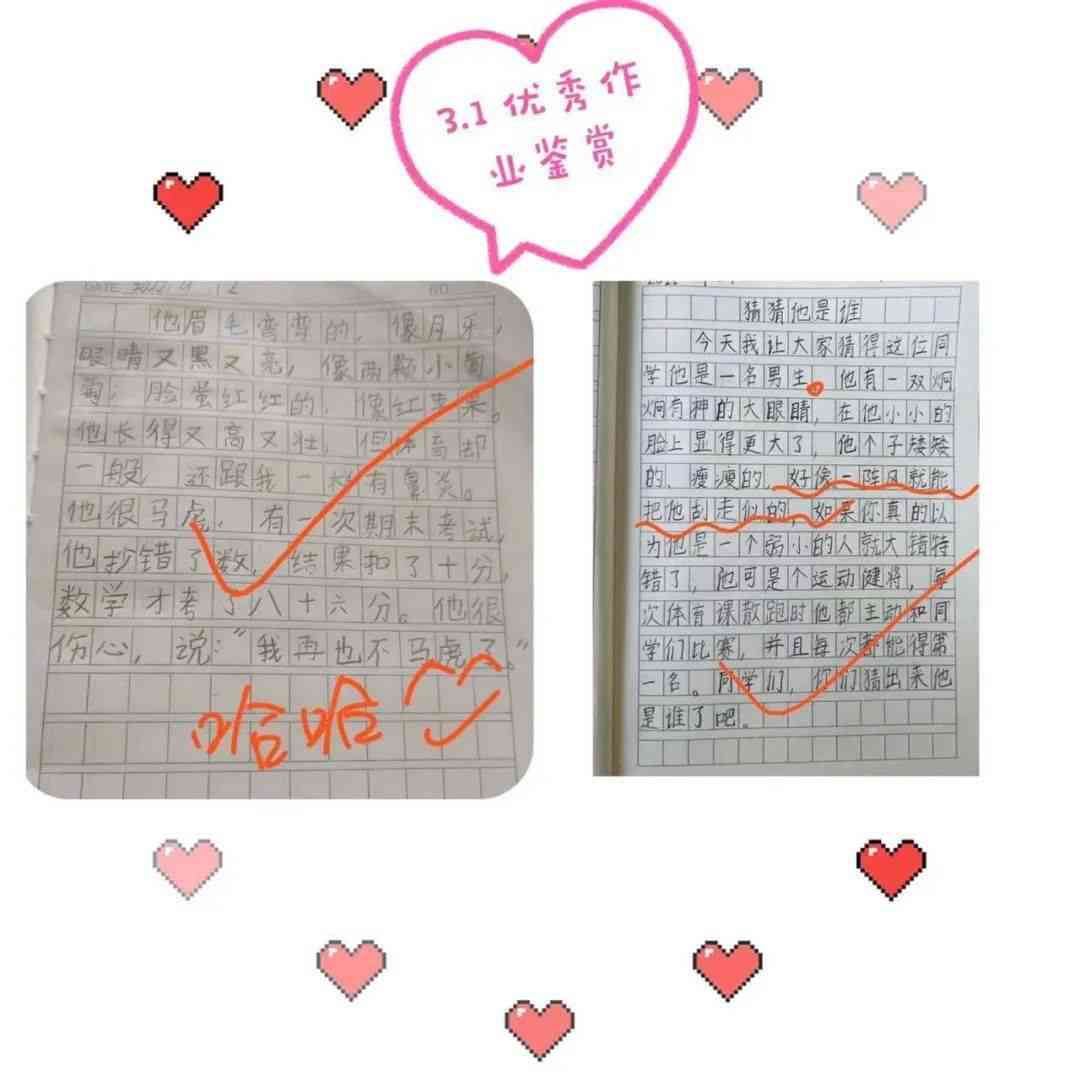 3.1优秀作
业鉴赏
他眉毛弯弯的，像月牙，
眼睛又黑又亮，像两颗小葡
萄；脸蛋红红的，像红苹果。
他长得又高又壮，但体育却
一般，还跟我一样有鼻炎。
他很马虎，有一次期末考试，
他抄错了数，结果扣了十分，
数学才考了八十六分。他很
伤心，说：“我再也不马虎了。”
哈哈
猜猜他是谁
今天我让大家猜得这位同
学他是一名男生。他有一双炯
炯有神的大眼睛，在他小小的
脸上显得更大了，他个子矮矮
的、瘦瘦的，好像一阵风就能
把他刮走似的，如果你真的以
为他是一个弱小的人就大错特
错了，他可是个运动健将，每
次体育课散跑时他都主动和同
学们比赛，并且每次都能得第
一名。同学们，你们猜出来他
是谁了吧。